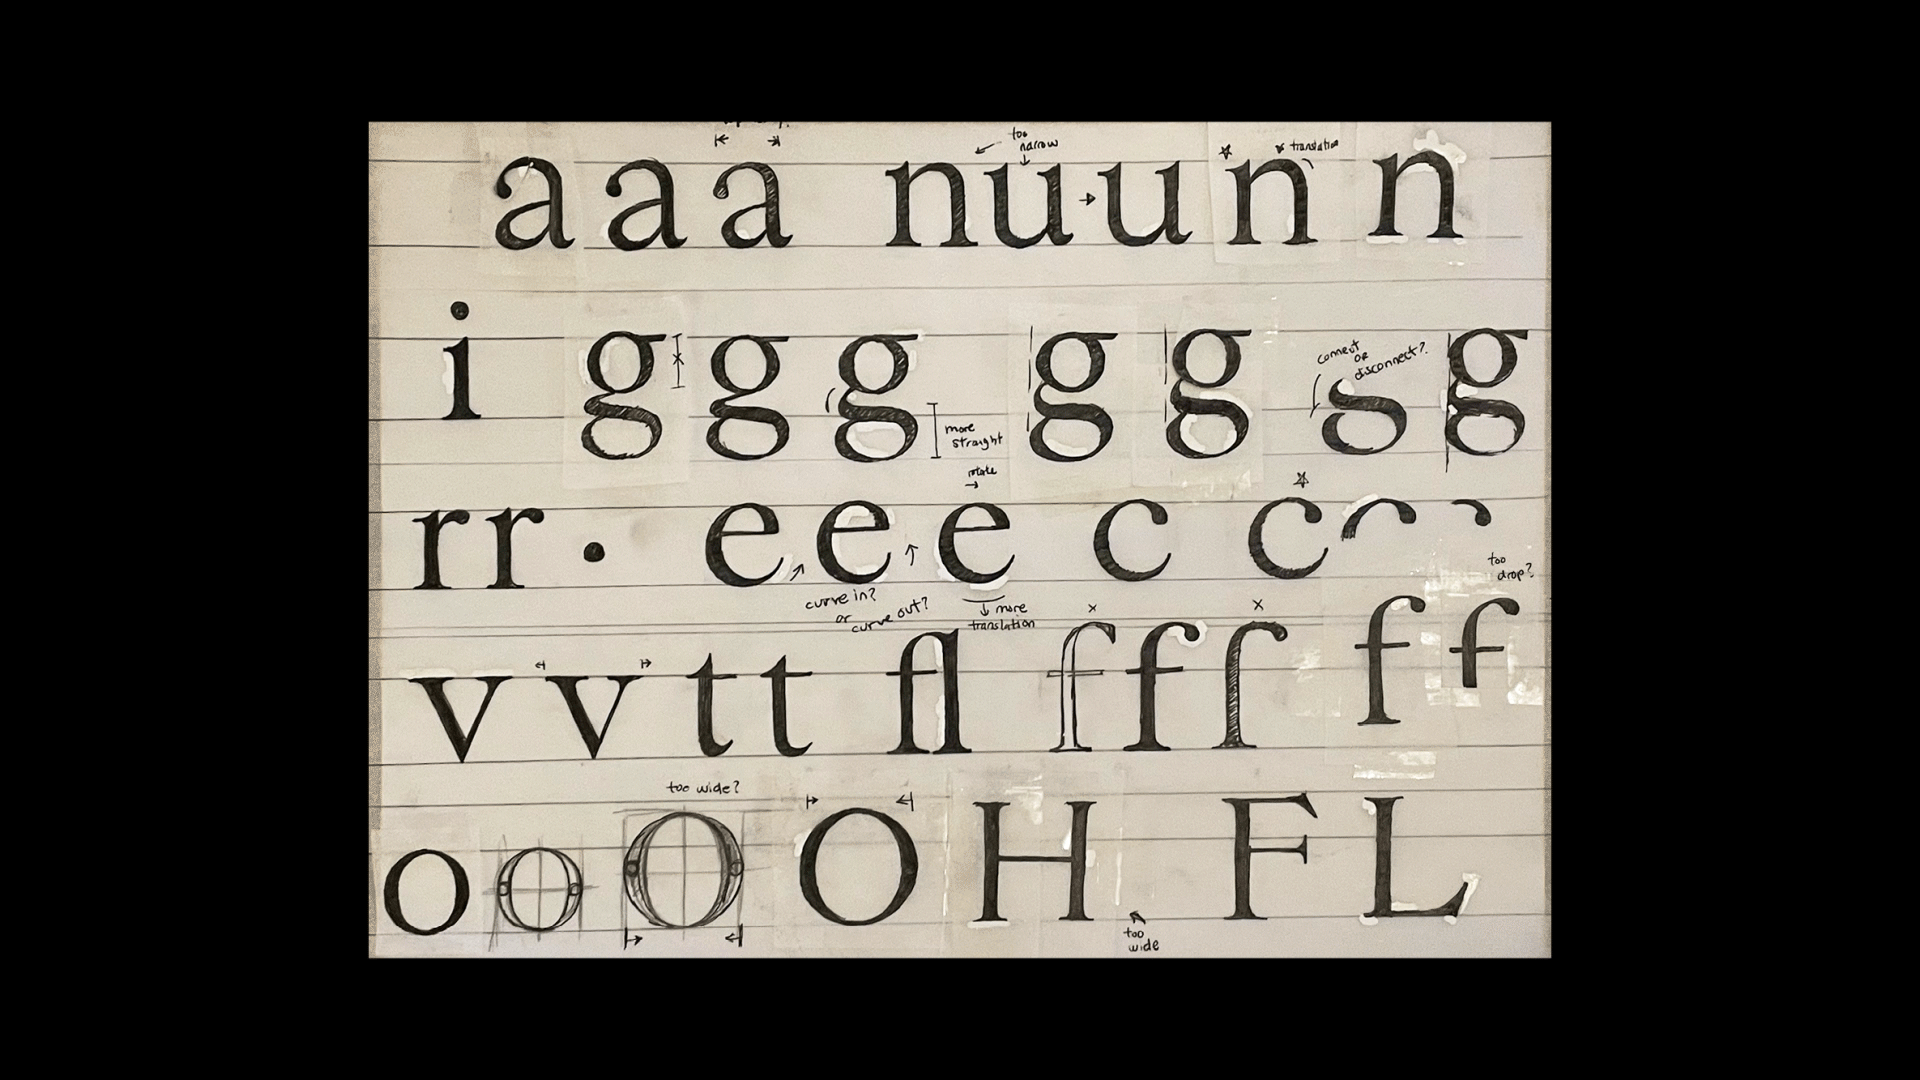 too
narrow
translation
a a a n u u n n
connect
or
disconnect?
i g g g g g g
more
straight
rotate
r r • e e e c c
too
drop?
curve in?
or
curve out?
more
translation
v v t t fl f f f f f
too wide?
o o O O H F L
too
wide